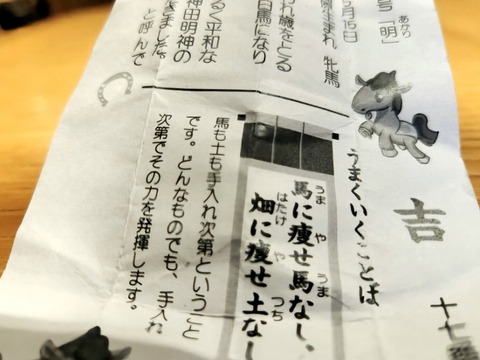 十七
吉
うまくいくことば
馬に痩せ馬なし、
畑に痩せ土なし
馬も土も手入れ次第ということ
です。どんなものでも、手入れ
次第でその力を発揮します。
号「明」
あかり
5月15日
生まれ 牝馬
われ歳をとる
白馬になり
るく平和な
神田明神の
きました。
と呼んで